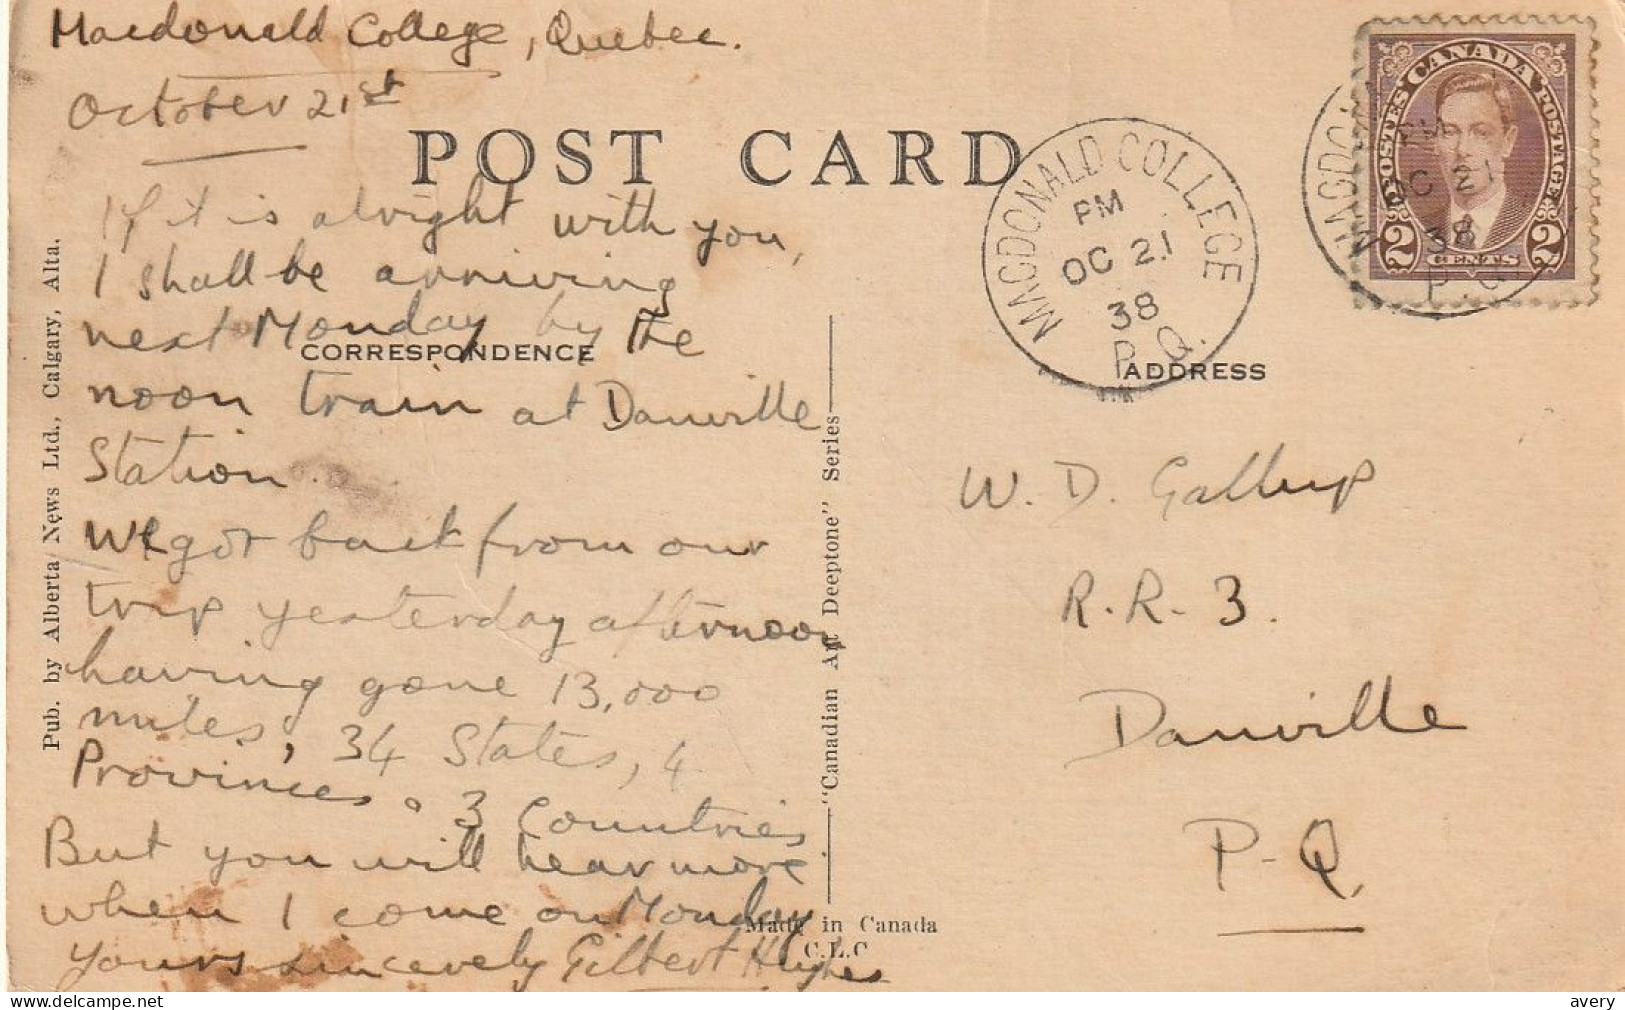 Macdonald College, Quebec.
October 21st
POST CARD
If it is alright with you,
I shall be arriving
next Monday by the
CORRESPONDENCE
noon train at Danville
Station.
We got back from our
trip yesterday afternoon
having gone 13,000
miles, 34 States, 4
Provinces. 3 Countries
But you will hear more
when I come on Monday
yours sincerely Gilbert Hughes
Pub. by Alberta News Ltd., Calgary, Alta.
"Canadian Art Deeptone" Series
Made in Canada
C.L.C
MACDONALD COLLEGE
PM
OC 21
38
P.Q.
CANADA
POSTES POSTAGE
2 CENTS 2
MACDON
PM
OC 21
38
P.Q.
ADDRESS
W. D. Gallup
R.R. 3.
Danville
P-Q.
avery